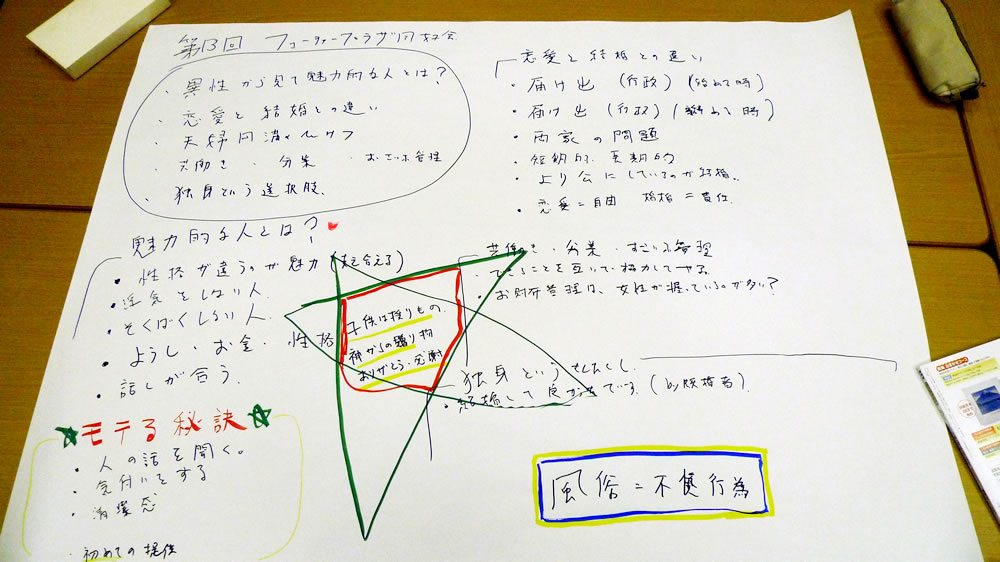 第13回 フューチャープラザ同好会
・異性から見て魅力的な人とは?
・恋愛と結婚との違い
・夫婦円満の
共働き・分業・おさいふ管理
・独身という選択肢
魅力的な人とは?
・性格が違うのが魅力(支え合える)
・浮気をしない人
・そくばくしない人
・ようし・お金・性格
・話しが合う
モテる秘訣
・人の話を聞く。
・気付いとする
・清潔感
・初めての提供
恋愛と結婚との違い
・届け出(行政)(始める時)
・届け出(行政)(辞める時)
・両家の問題
・短期的、長期的
・より公にしているのが結婚。
・恋愛=自由 結婚=責任
共働き・分業・さいふ管理
・できることを互いに協力してやる
・お財布管理は、女性が握っているのが多い?
子供は授りもの。
神からの贈り物
ありがとう・感謝
独身というせんたくし
・結婚して良かったです。(by既婚者)
風俗=不貞行為